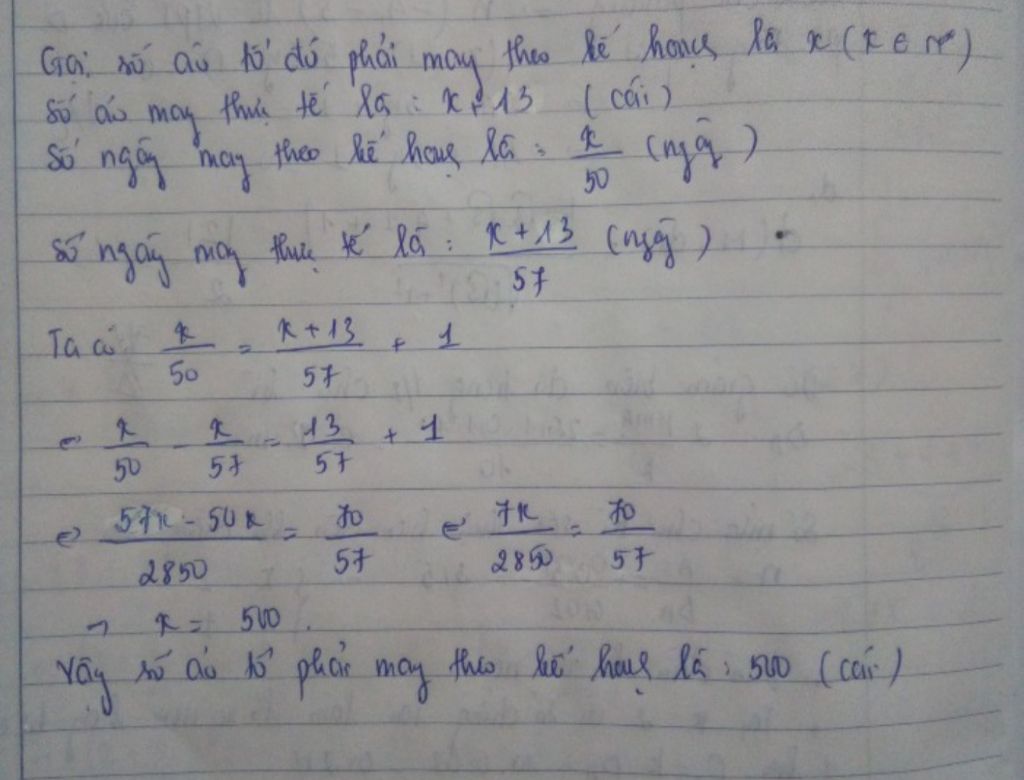 Gọi số áo tổ đó phải may theo kế hoạch là x (x ∈ N*)
Số áo may thực tế là : x + 13 (cái)
Số ngày may theo kế hoạch là : x/50 (ngày)
Số ngày may thực tế là : x+13/57 (ngày)
Ta có x/50 = x+13/57 + 1
⇔ x/50 - x/57 = 13/57 + 1
⇔ 57x - 50x/2850 = 70/57 ⇔ 7x/2850 = 70/57
→ x = 500.
Vậy số áo tổ phải may theo kế hoạch là : 500 (cái)